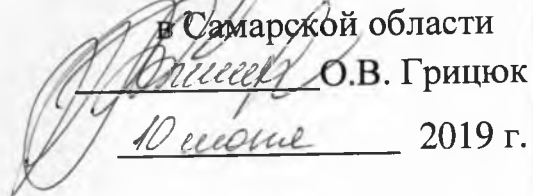 в Самарской области
О.В. Грицюк
10 июня 2019 г.